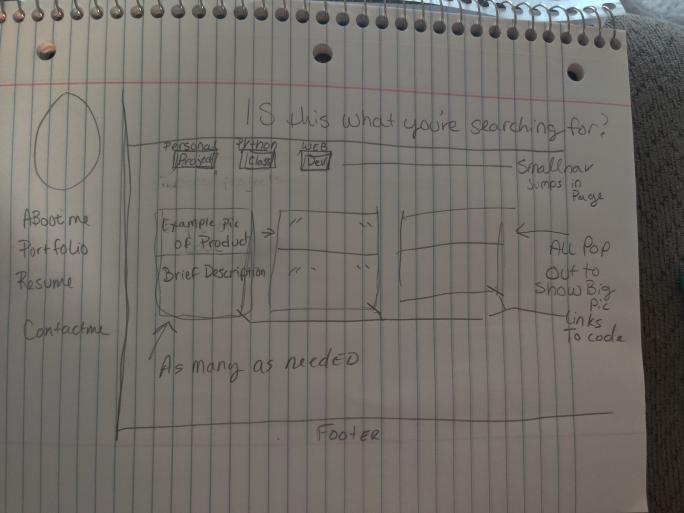 IS this what you're searching for?
Personal Python WEB
Project Class Dev
Small nav
Jumps in
Page
ABout me
Portfolio
Resume
Contact me
Example Pic
of Product
Brief Description
" "
" "
All Pop
Out to
Show Big
Pic
Links
To code
As many as needED
FootER